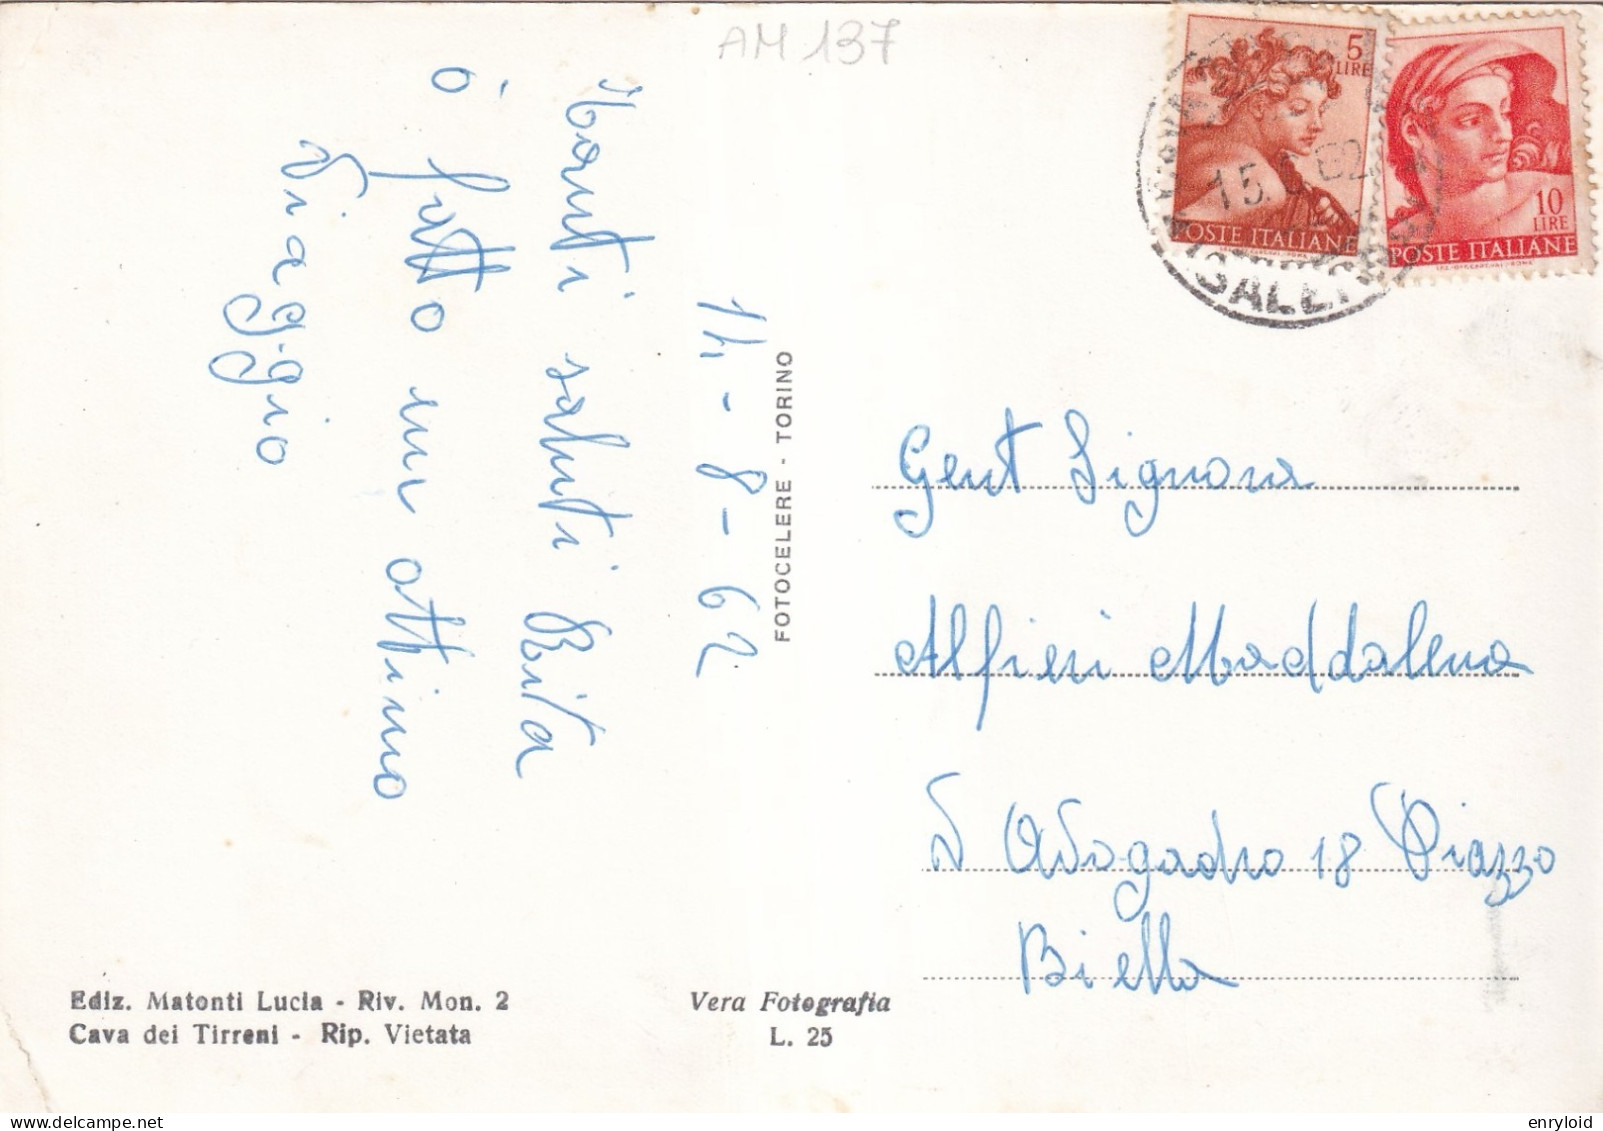 AM 137
Tanti saluti Rita
ò fatto un ottimo
Viaggio
14-8-62
FOTOCELERE - TORINO
5
LIRE
POSTE ITALIANE
10
LIRE
POSTE ITALIANE
15.
62
Gent Signora
Alfieri Maddalena
Avogadro 18 Piazzo
Biella
Ediz. Matonti Lucia - Riv. Mon. 2
Cava dei Tirreni - Rip. Vietata
Vera Fotografia
L. 25
enryloid
delcampe.net